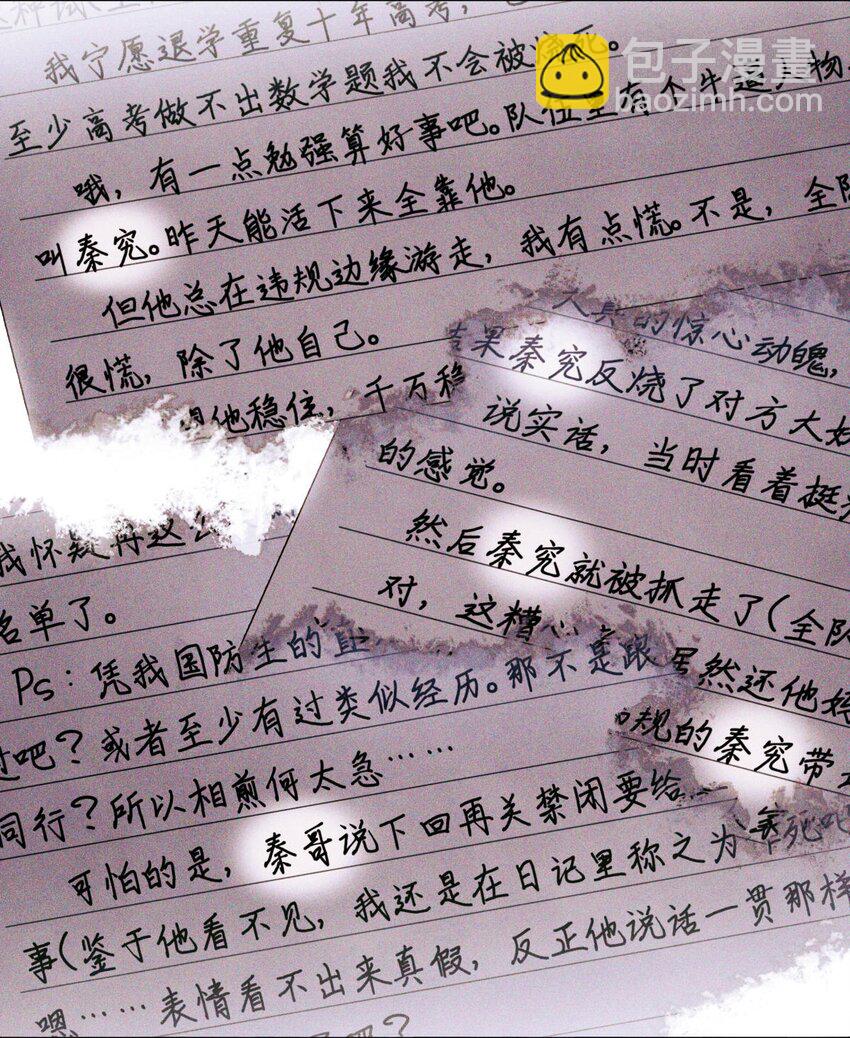 我宁愿退学重复十年高考，
至少高考做不出数学题我不会被
哦，有一点勉强算好事吧。队伍里有个牛逼人物，
叫秦究。昨天能活下来全靠他。
但他总在违规边缘游走，我有点慌。不是，全队
很慌，除了他自己。
他稳住，千万稳
的惊心动魄，
结果秦究反烧了对方大
说实话，当时看着挺
的感觉。
然后秦究就被抓走了（全队
对，这糟心
虽然还他
规的秦究带
我怀疑再这么
名单了。
Ps：凭我国防生的直
过吧？或者至少有过类似经历。那不是跟
同行？所以相煎何太急……
可怕的是，秦哥说下回再关禁闭要给
死吧
事（鉴于他看不见，我还是在日记里称之为
嗯……表情看不出来真假，反正他说话一贯那样
吧？
包子漫畫
baozimh.com